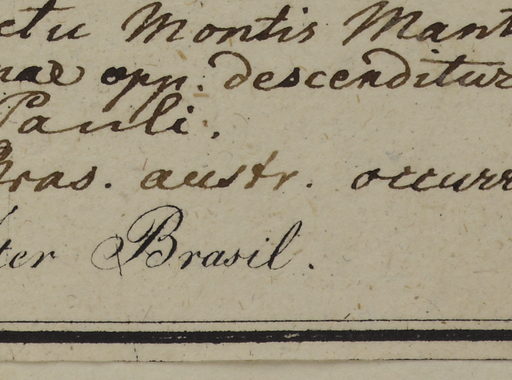 ctu Montis Mant
nae opp. descenditur
Pauli.
Bras. austr. occurr
ter Brasil.